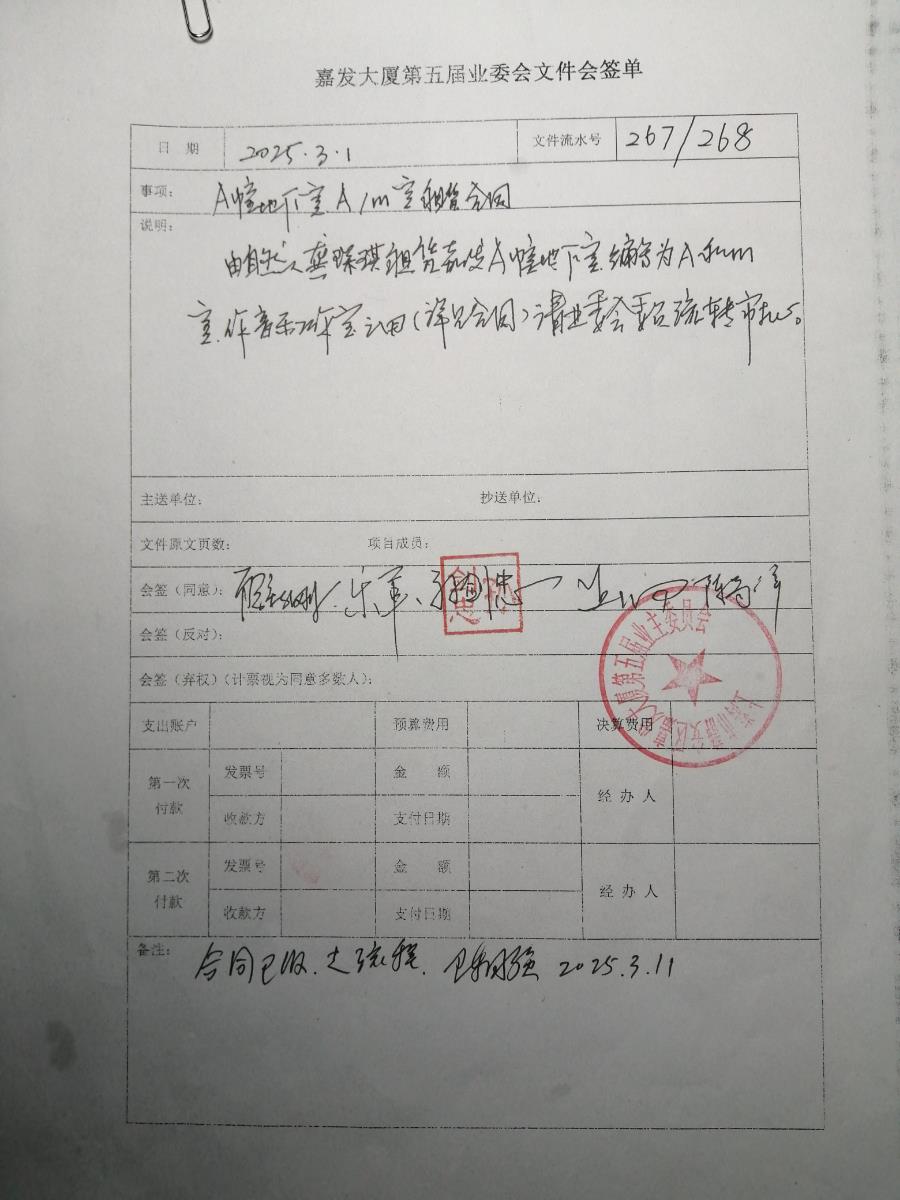 嘉发大厦第五届业委会文件会签单
日 期 2025.3.1 文件流水号 267/268
事项: A幢地下室A/m室租赁合同
说明:
由自然人龚琛琪租赁嘉发A幢地下室编号为A和m
室.作音乐工作室之用(详见合同)请业委会委员流转审批。
主送单位: 抄送单位:
文件原文页数: 项目成员:
会签(同意):
会签(反对):
会签(弃权)(计票视为同意多数人):
支出账户 预算费用 决算费用
第一次付款 发票号 金 额 经 办 人
收款方 支付日期
第二次付款 发票号 金 额 经 办 人
收款方 支付日期
备注: 合同已收.走流程. 2025.3.11
大厦第五届业主委员会